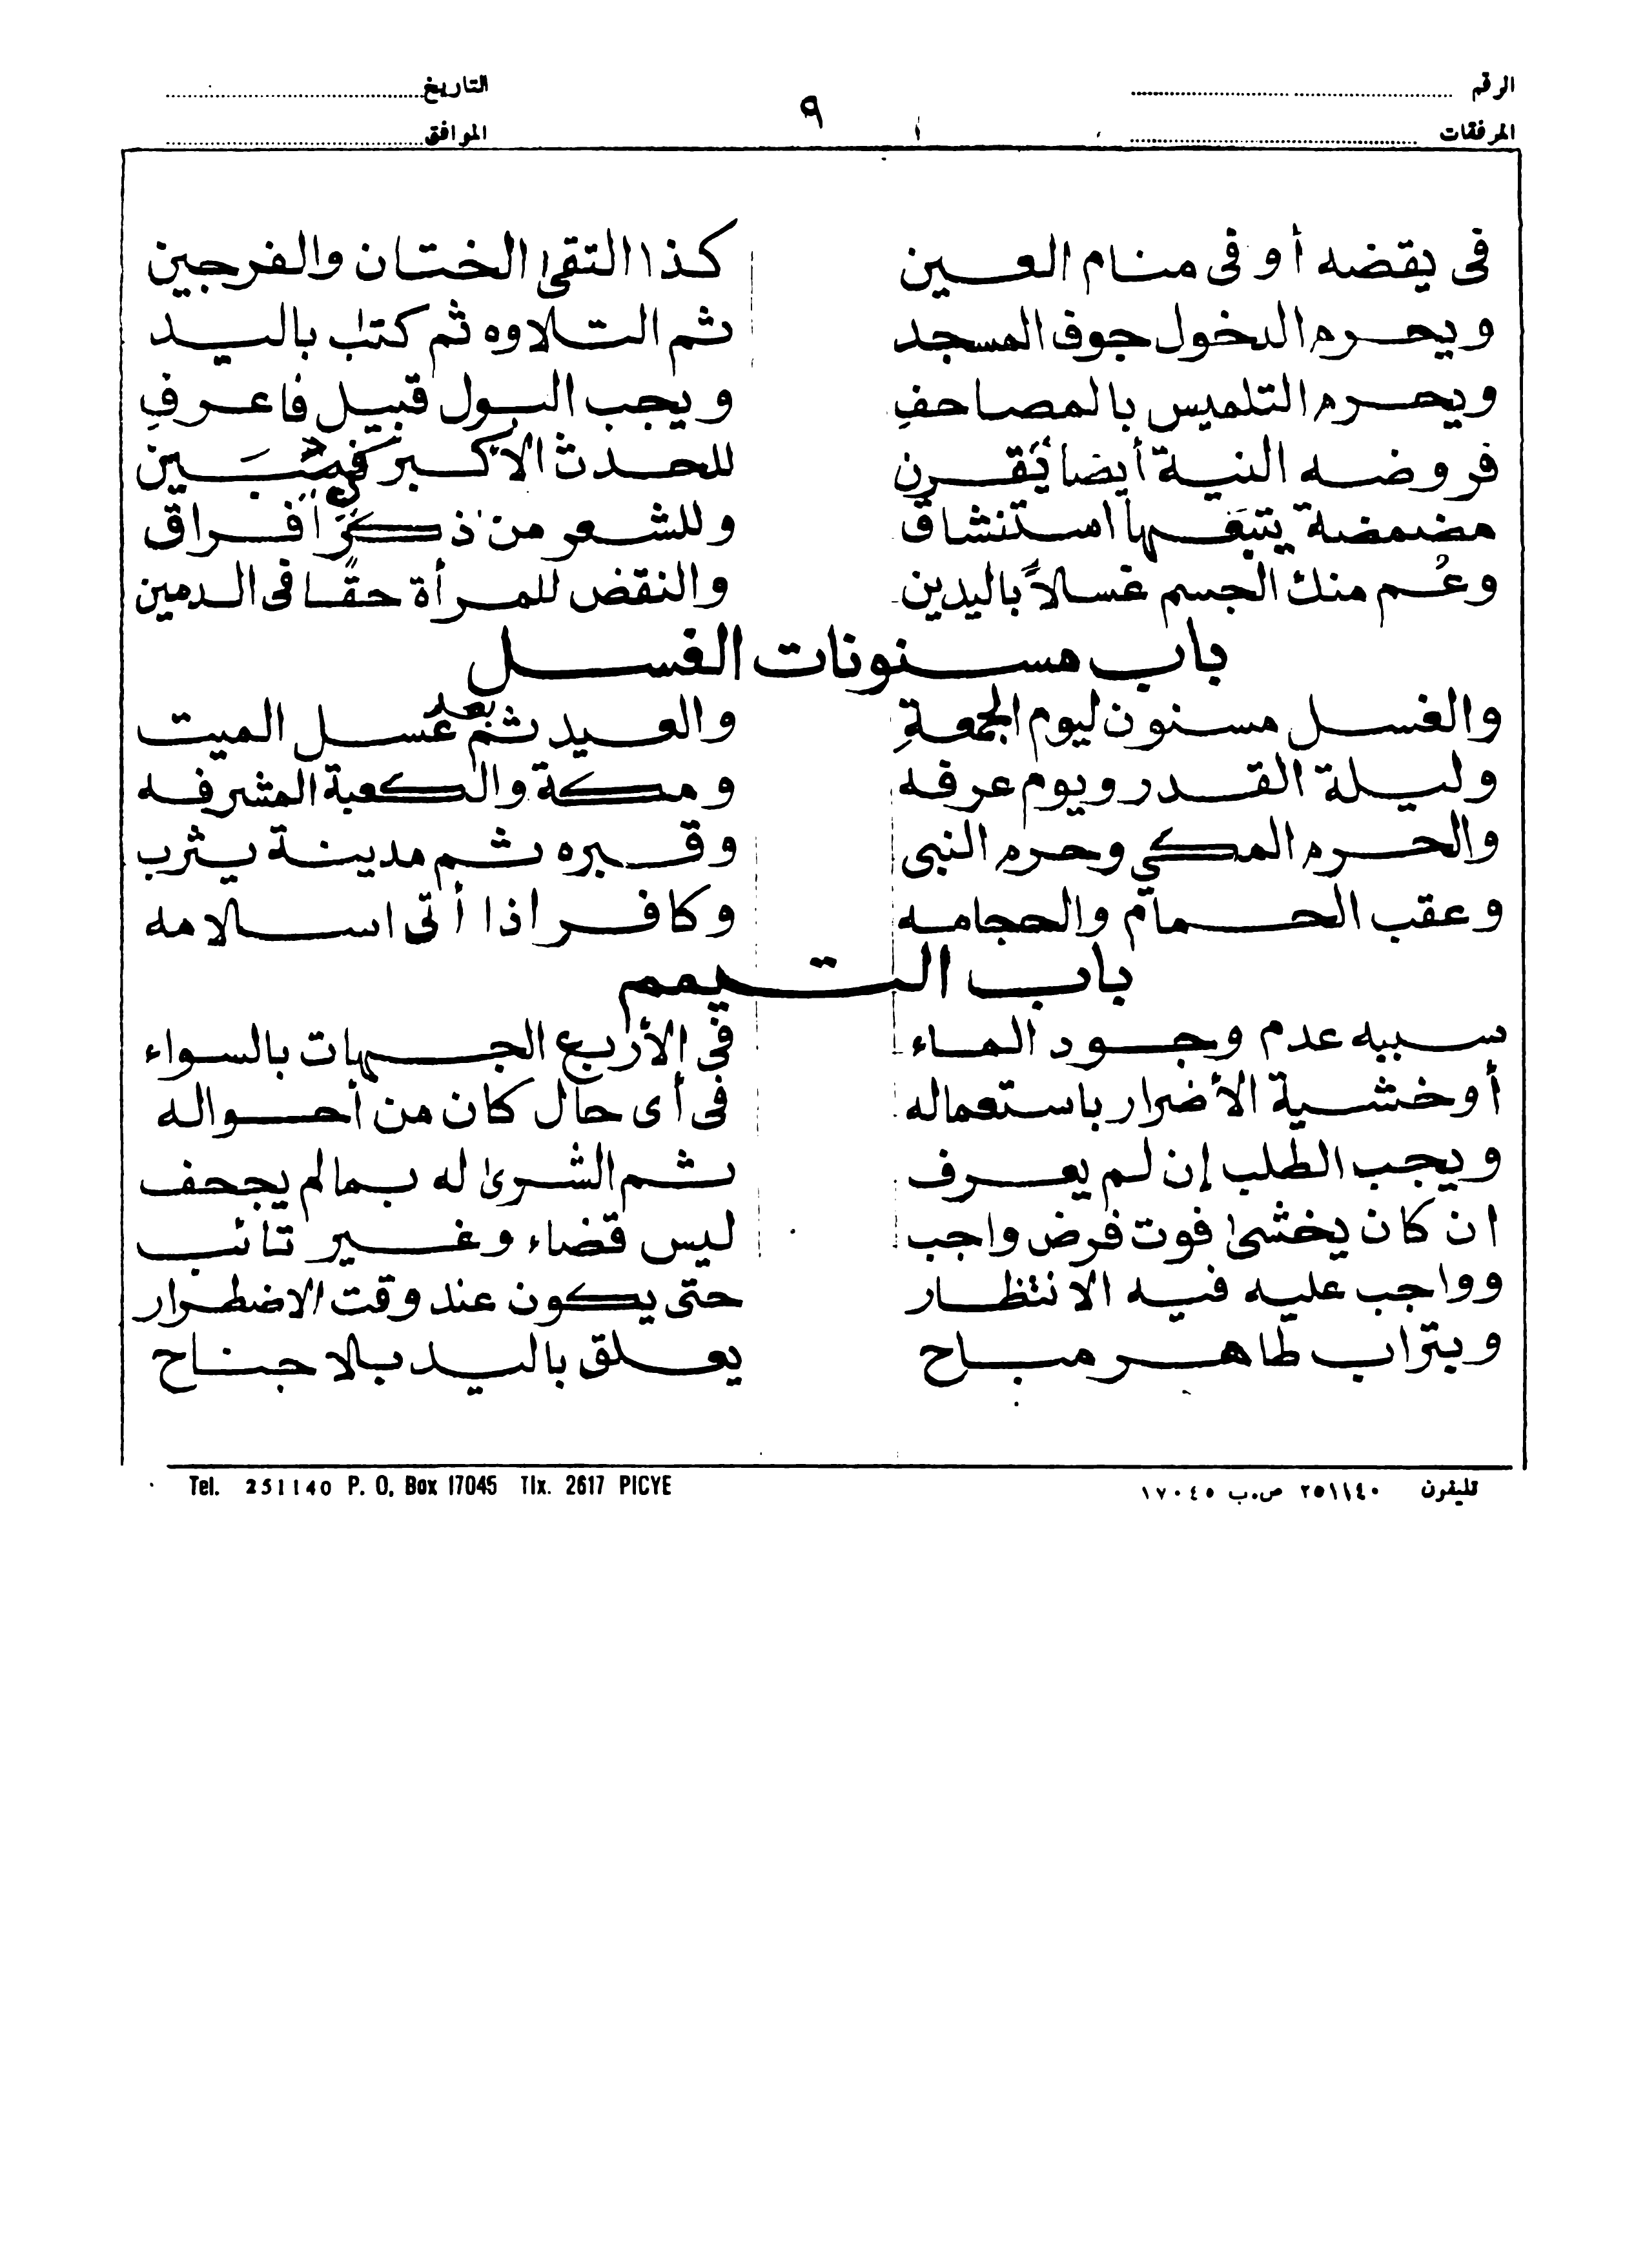 الرقم التاريخ
٩
المرفقات الموافق
فى يقضه أو فى منام العين كذا التقى الختان والفرجين
ويحرم الدخول جوف المسجد ثم التلاوه ثم كتب باليد
ويحرم التلميس بالمصاحفِ ويجب البول قبيل فاعرفِ
فروضه النية أيضا يُقرن للحدث الاكبر
مضمضة يتبعها استنشاق وللشعر من ذكر افراق
وعُم منك الجسم غسلاً باليدين والنقض للمرأة حقًا فى الدمين
باب مسنونات الغسل
والغسل مسنون ليوم الجمعةِ والعيد ثم بعد غسل الميت
وليلة القدر ويوم عرفه ومكة والكعبة المشرفه
والحرم المكي وحرم النبى وقبره ثم مدينة يثرب
وعقب الحمام والحجامه وكافر اذا أتى اسلامه
باب التيمم
سببه عدم وجود الماء فى الأربع الجهات بالسواء
أو خشية الأضرار باستعماله فى أى حال كان من أحواله
ويجب الطلب إن لم يعرف ثم الشرى له بمالم يجحف
ان كان يخشى فوت فرض واجب ليس قضاء وغير تائب
وواجب عليه فيه الانتظار حتى يكون عند وقت الاضطرار
وبتراب طاهر مباح يعلق باليد بلا جناح
تليفون ٢٥١١٤٠ ص.ب ١٧٠٤٥ Tel. 251140 P. O, Box 17045 Tlx. 2617 PICYE